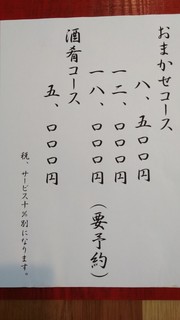 おまかせコース
八、五〇〇円
一二、〇〇〇円
一八、〇〇〇円（要予約）
酒肴コース
五、〇〇〇円
税、サービス十%別になります。